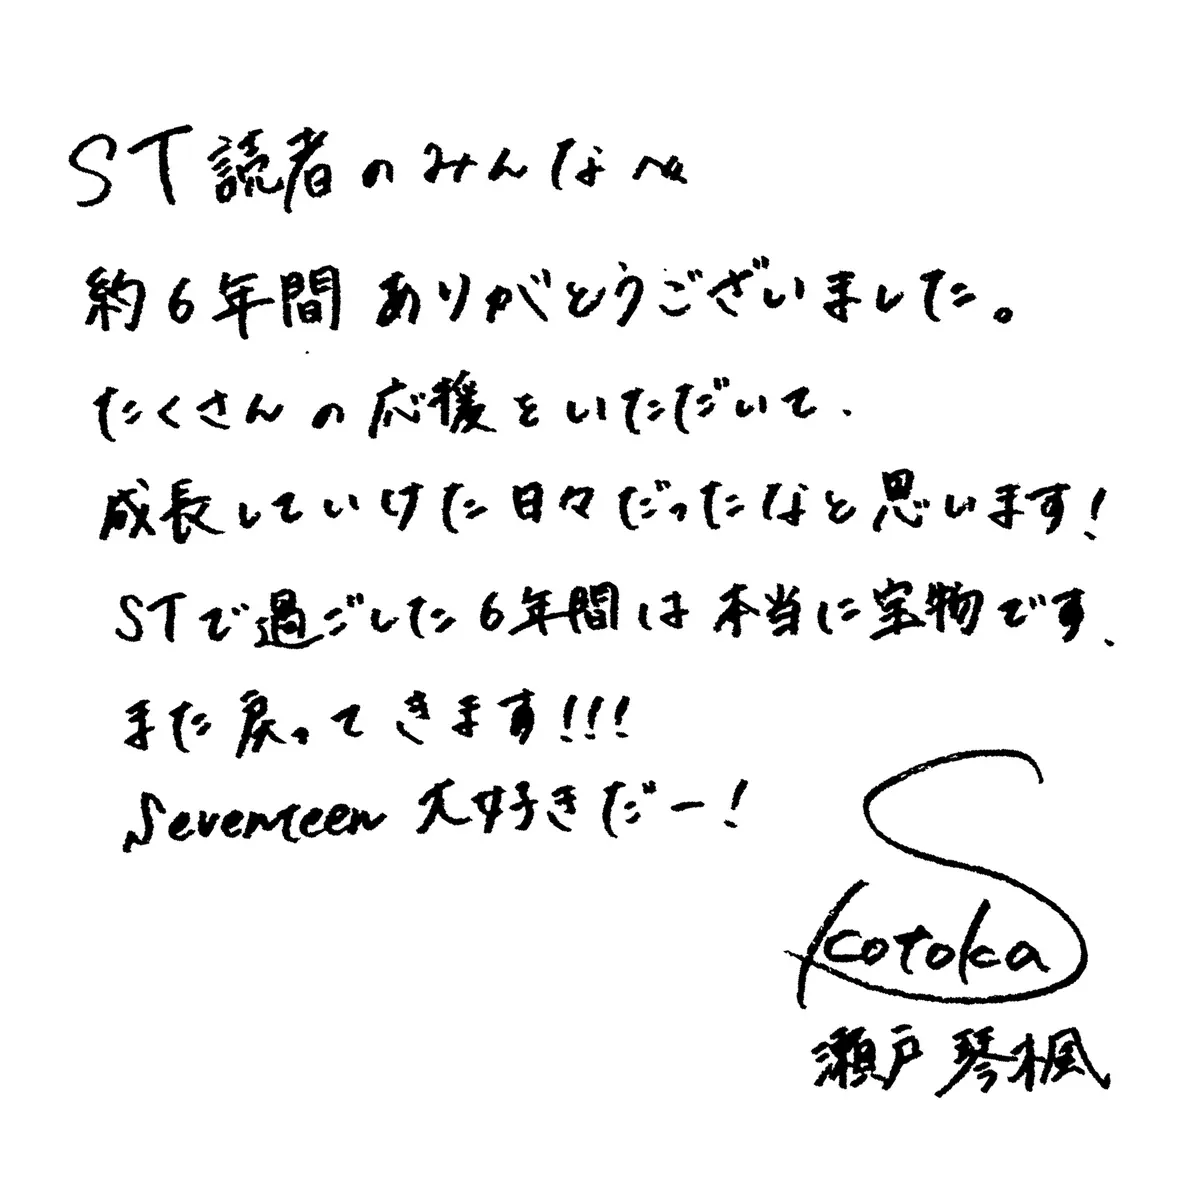 ST読者のみんなへ
約6年間ありがとうございました。
たくさんの応援をいただいて、
成長していけた日々だったなと思います!
STで過ごした6年間は本当に宝物です、
また戻ってきます!!!
Seventeen大好きだー!
S
kotoka
瀬戸琴楓